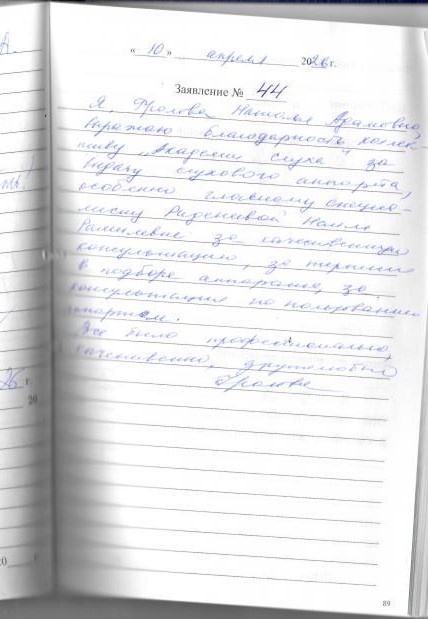 « 10 » апреля 2026 г.
Заявление № 44
Я, Фролова Наталья Адамовна,
выражаю благодарность коллек-
тиву „Академии слуха" за
выдачу слухового аппарата,
особенно главному специа-
листу
Рамилевне за качественную
консультацию, за терпение
в подборе аппарата, за
консультация по пользованию
Все было профессионально,
качественно,
Фролова
26 г.
20
20
89